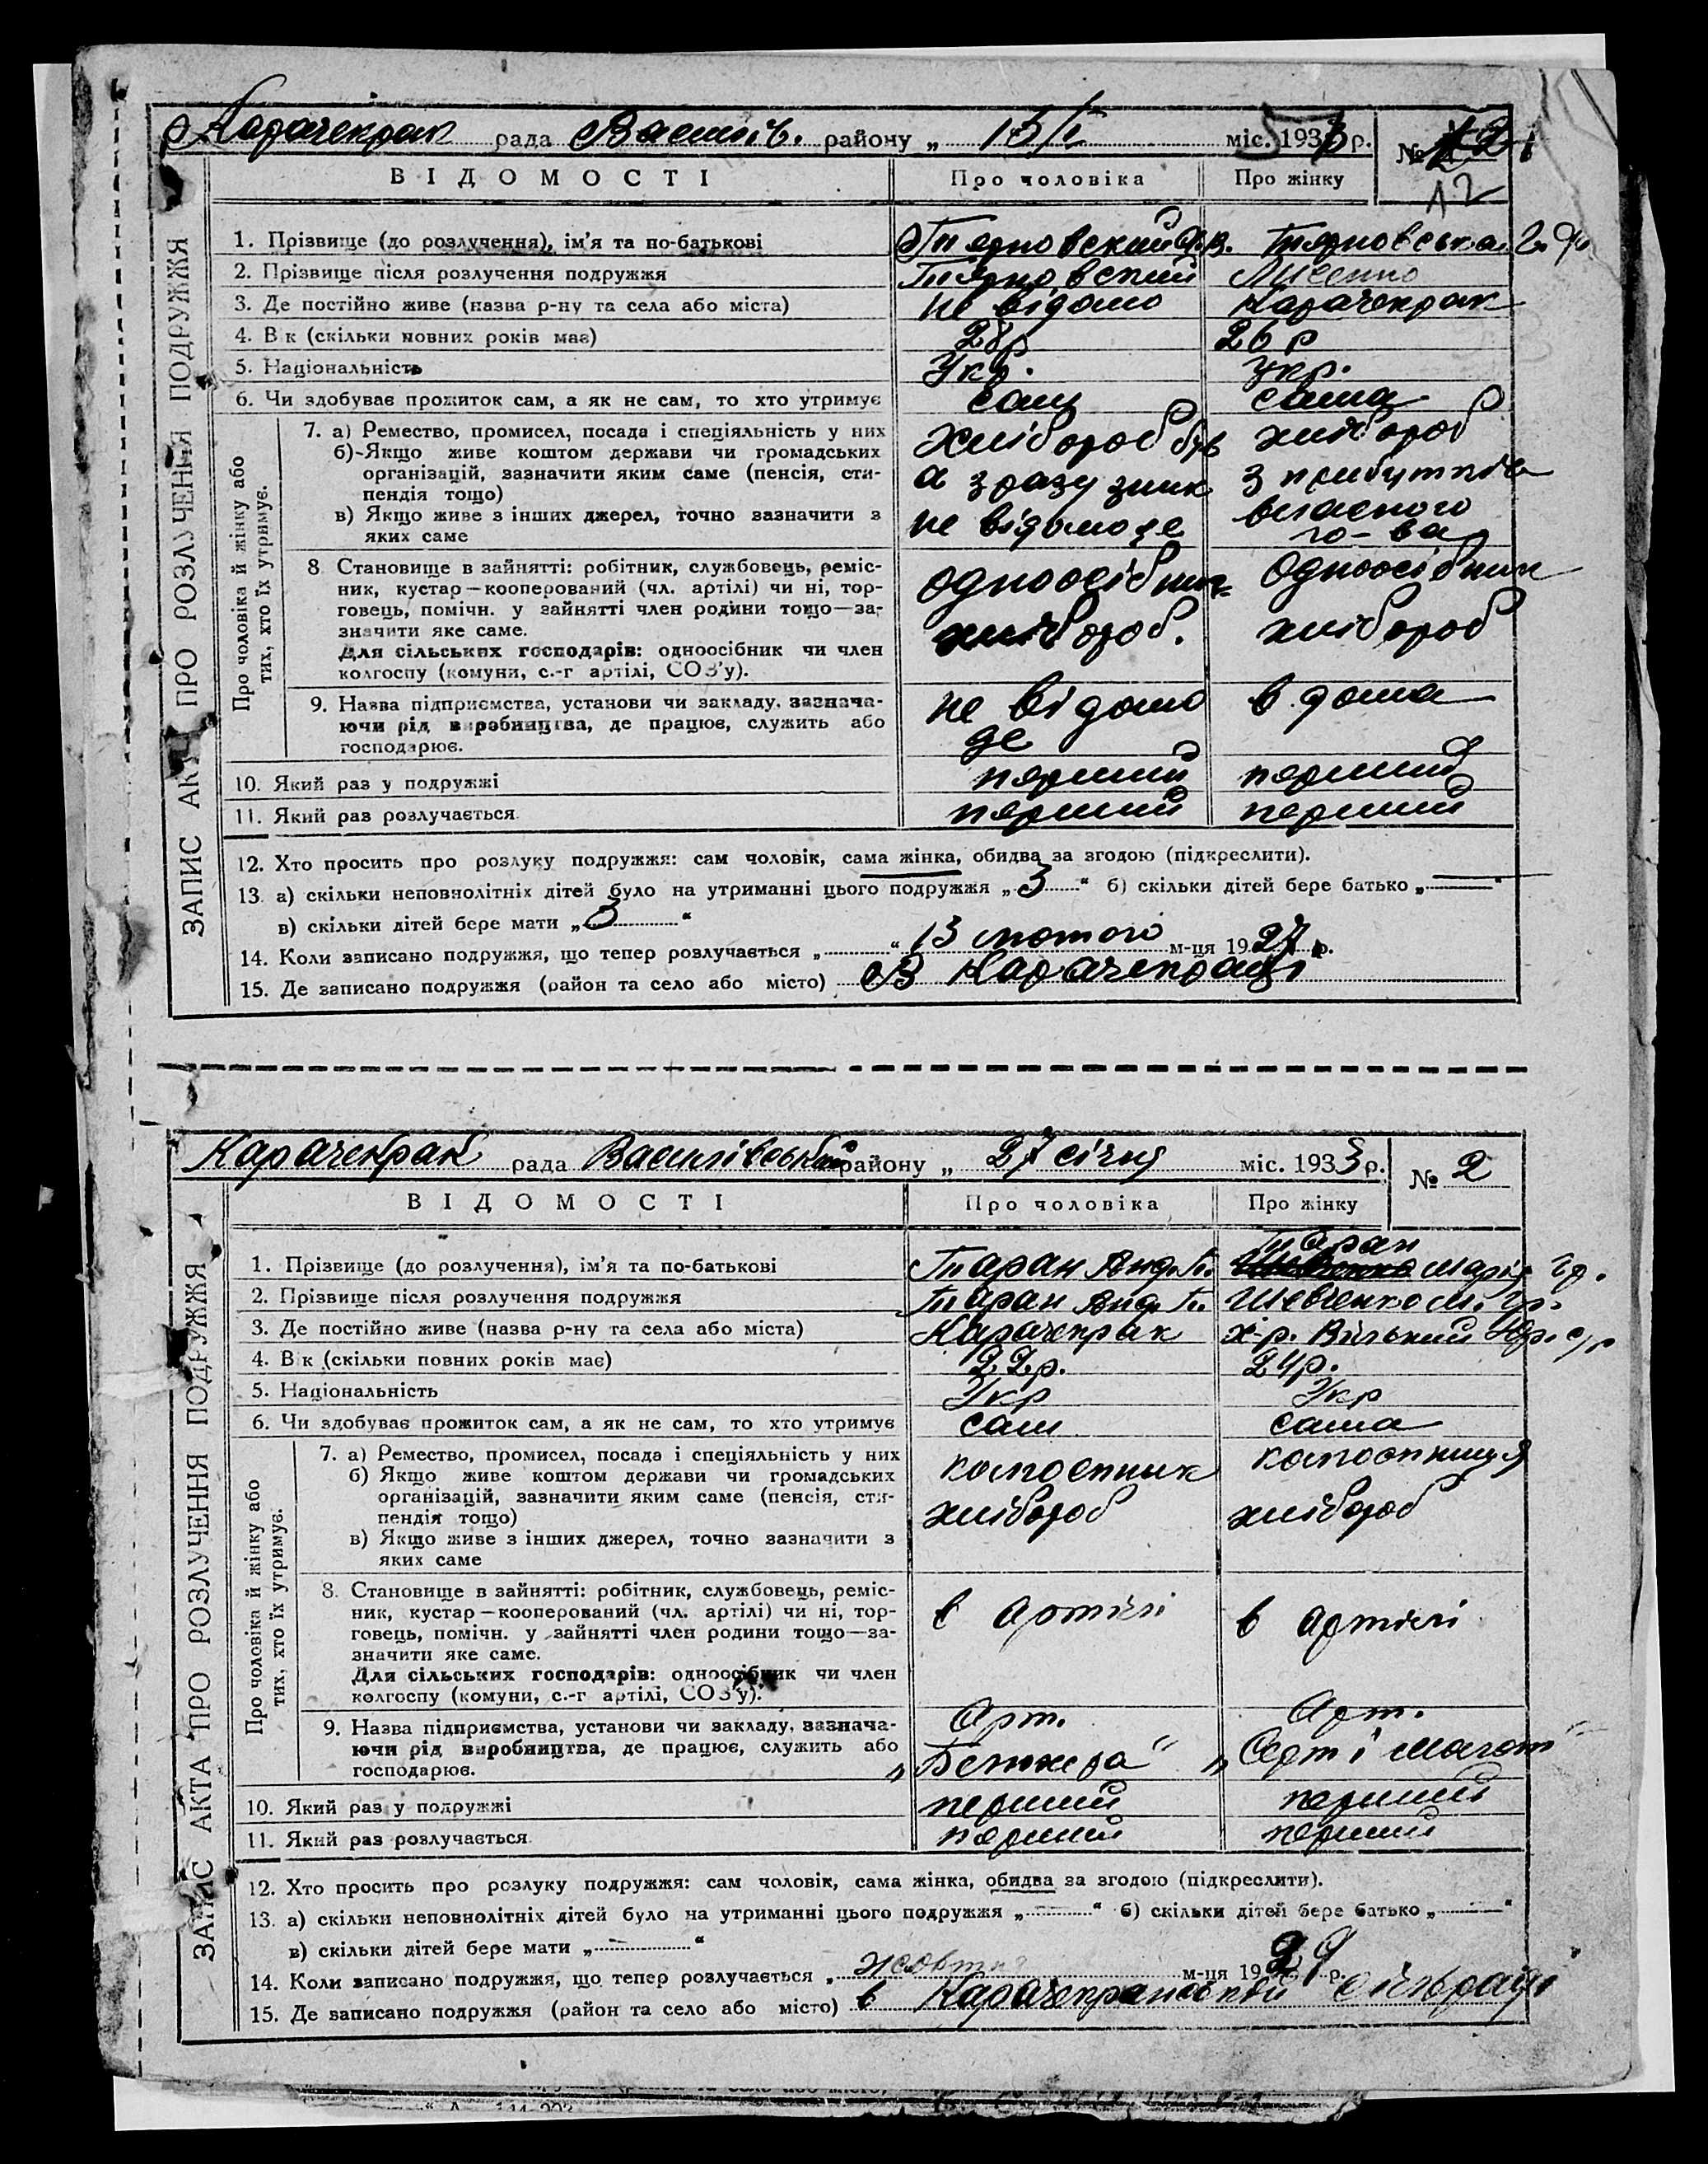 Карачекрак рада Василів. району „ 13/I міс. 1933 р. №
12
ЗАПИС АКТА ПРО РОЗЛУЧЕННЯ ПОДРУЖЖЯ
ВІДОМОСТІ Про чоловіка Про жінку
1. Прізвище (до розлучення), ім'я та по-батькові Терновский Терновська
2. Прізвище після розлучення подружжя Терновский Лисенко
3. Де постійно живе (назва р-ну та села або міста) не відомо Карачекрак
4. Вік (скільки повних років має) 28 р 26 р
5. Національність Укр. укр.
6. Чи здобуває прожиток сам, а як не сам, то хто утримує сам сама
Про чоловіка й жінку або тих, хто їх утримує.
7. а) Ремество, промисел, посада і спеціяльність у них хлібороб був хлібороб
б) Якщо живе коштом держави чи громадських
організацій, зазначити яким саме (пенсія, сти- а зразу зник з прибутків
пендія тощо)
в) Якщо живе з інших джерел, точно зазначити з не відомо де власного
яких саме го-ва
8. Становище в зайнятті: робітник, службовець, реміс- одноосібник одноосібник
ник, кустар—кооперований (чл. артілі) чи ні, тор-
говець, помічн. у зайнятті член родини тощо—за- хлібороб. хлібороб
значити яке саме.
Для сільських господарів: одноосібник чи член
колгоспу (комуни, с.-г артілі, СОЗ'у).
9. Назва підприємства, установи чи закладу, зазнача- не відомо в дома
ючи рід виробництва, де працює, служить або де
господарює.
10. Який раз у подружжі перший перший
11. Який раз розлучається перший перший
12. Хто просить про розлуку подружжя: сам чоловік, сама жінка, обидва за згодою (підкреслити).
13. а) скільки неповнолітніх дітей було на утриманні цього подружжя „ 3 “ б) скільки дітей бере батько „ — “
в) скільки дітей бере мати „ 3 “
14. Коли записано подружжя, що тепер розлучається „ “ 13 лютого м-ця 1927 р.
15. Де записано подружжя (район та село або місто) В Карачекраці
Карачекрак рада Василівський району „ 27 січня міс. 1933 р. № 2
ЗАПИС АКТА ПРО РОЗЛУЧЕННЯ ПОДРУЖЖЯ
ВІДОМОСТІ Про чоловіка Про жінку
Таран
1. Прізвище (до розлучення), ім'я та по-батькові Таран Анд. П. Марія Гр.
2. Прізвище після розлучення подружжя Таран Анд. П. Шевченко М. Гр.
3. Де постійно живе (назва р-ну та села або міста) Карачекрак х-р. Вільний
4. Вік (скільки повних років має) 22р. 24р.
5. Національність Укр Укр
6. Чи здобуває прожиток сам, а як не сам, то хто утримує сам сама
Про чоловіка й жінку або тих, хто їх утримує.
7. а) Ремество, промисел, посада і спеціяльність у них колгоспник колгоспниця
б) Якщо живе коштом держави чи громадських
організацій, зазначити яким саме (пенсія, сти-
пендія тощо) хлібороб хлібороб
в) Якщо живе з інших джерел, точно зазначити з
яких саме
8. Становище в зайнятті: робітник, службовець, реміс-
ник, кустар—кооперований (чл. артілі) чи ні, тор- в артілі в артілі
говець, помічн. у зайнятті член родини тощо—за-
значити яке саме.
Для сільських господарів: одноосібник чи член
колгоспу (комуни, с.-г артілі, СОЗ'у).
9. Назва підприємства, установи чи закладу, зазнача- Арт. Арт.
ючи рід виробництва, де працює, служить або „Беткера“ „Серп і молот
господарює.
10. Який раз у подружжі перший перший
11. Який раз розлучається перший перший
12. Хто просить про розлуку подружжя: сам чоловік, сама жінка, обидва за згодою (підкреслити).
13. а) скільки неповнолітніх дітей було на утриманні цього подружжя „ — “ б) скільки дітей бере батько „ — “
в) скільки дітей бере мати „ — “
14. Коли записано подружжя, що тепер розлучається „ жовтня м-ця 1929 р.
15. Де записано подружжя (район та село або місто) в Карачекракській сільраді